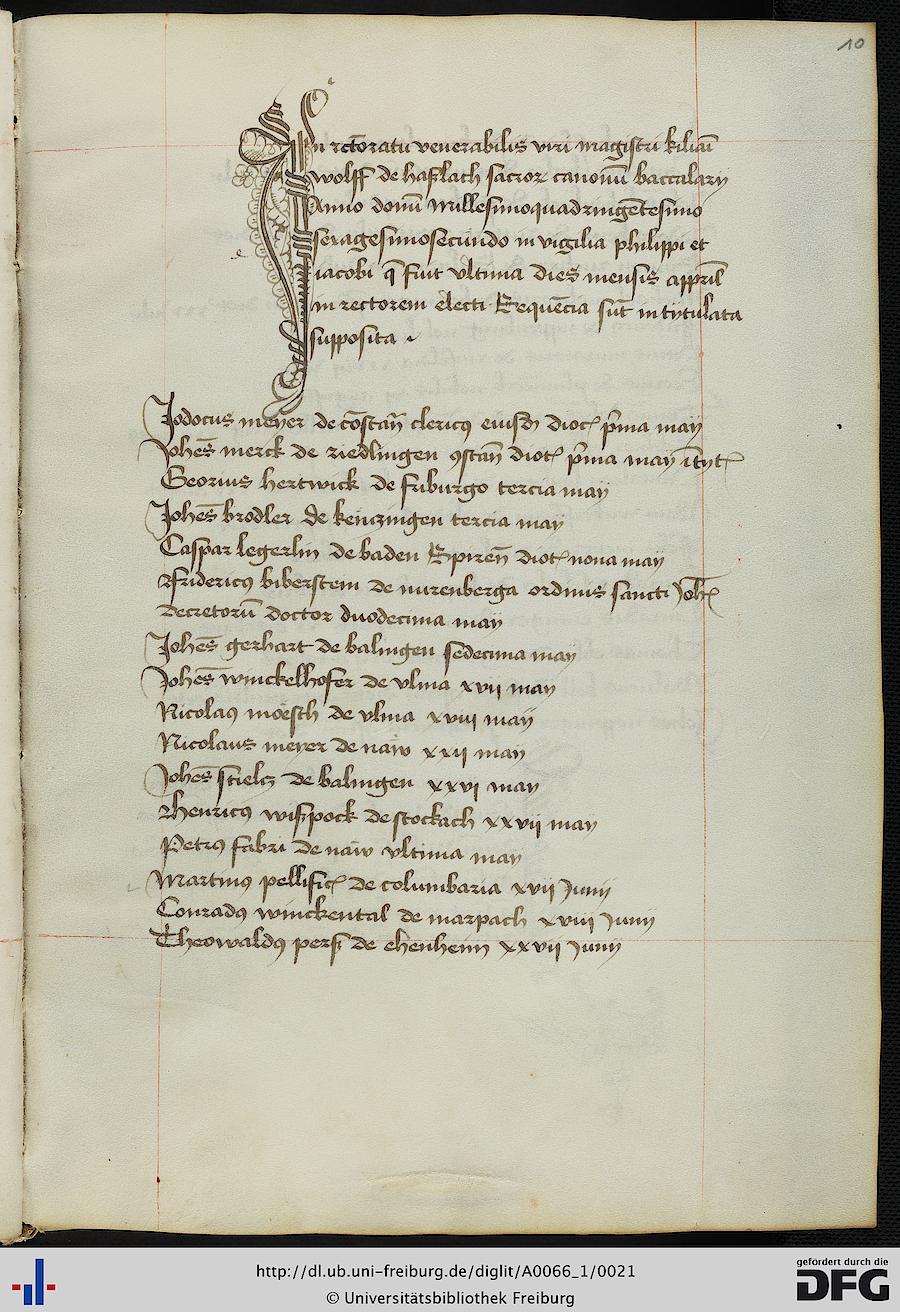 10
In rectoratu venerabilis viri magistri kiliani
wolff de haslach sacroꝝ canonū baccalarij
Anno domī Millesimoquadringētesimo
sexagesimosecundo in vigilia philippi et
iacobi q̄ fuit vltima dies mensis apprił
in rectorem electi Sequēcia sūt intytulata
supposita
Jodocus meyer de cōstan̄ clericꝯ eiusdē dioc̄ p̄ma maij
Johēs merck de riedlingen ꝯstan̄ dioc̄ p̄ma maij ītyt̄
Georius hertwick de friburgo tercia maij
Johēs brodler de kenczingen tercia maij
Caspar legerlin de baden Spireñ dioc̄ nona maij
Fridericꝯ biberstein de nurenberga ordinis sancti Joh̄
decretorū doctor duodecima maij
Johēs gerhart de balingen sedecima maij
Johēs winckelhofer de vlma xvij maij
Nicolaꝯ moesch de vlma xviij maij
Nicolaus meyer de naw xxij maij
Johēs stieltz de balingen xxvj maij
Henricꝯ wispock de stockach xxvij maij
Petrꝯ fabri de naw vltima maij
Martinꝯ pellific̄ de columbaria xvij Junij
Conradꝯ winckental de marpach xviij Junij
Theowaldꝯ pers de ehenheim xxvij Junij
http://dl.ub.uni-freiburg.de/diglit/A0066_1/0021
© Universitätsbibliothek Freiburg
gefördert durch die
DFG